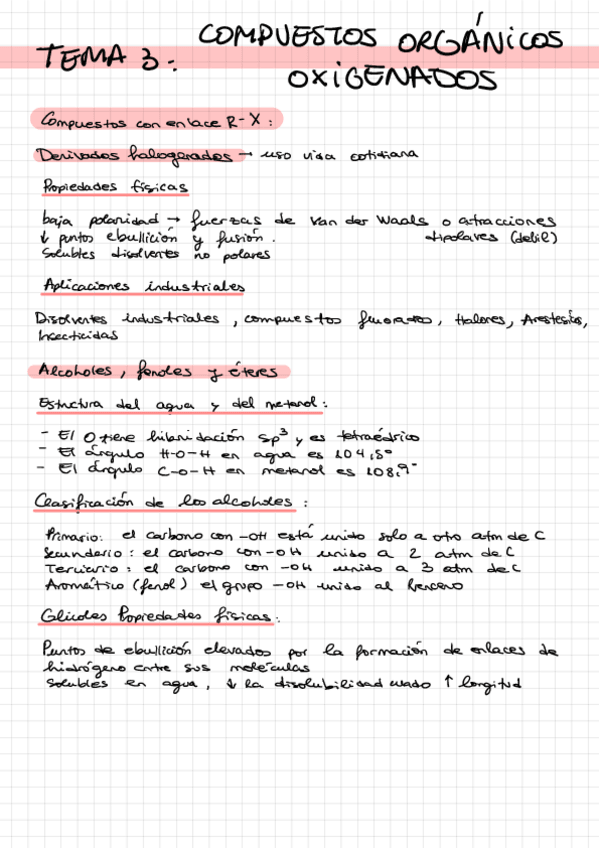 TEMA 3: COMPUESTOS ORGÁNICOS
OXIGENADOS
Compuestos con enlace R-X:
Derivados halogenados → uso vida cotidiana
Propiedades físicas
baja polaridad → fuerzas de Van der Waals o atracciones
dipolares (debil)
↓ puntos ebullición y fusión.
Solubles disolventes no polares
Aplicaciones industriales
Disolventes industriales, compuestos fluorados, Halones, Anestesias,
Insecticidas
Alcoholes, fenoles y éteres
Estructura del agua y del metanol:
- El O tiene hibridación sp³ y es tetraédrico
- El ángulo H-O-H en agua es 104,5º
- El ángulo C-O-H en metanol es 108,9º
Clasificación de los alcoholes:
Primario: el carbono con -OH está unido solo a otro atm de C
Secundario: el carbono con -OH unido a 2 atm de C
Terciario: el carbono con -OH unido a 3 atm de C
Aromático (fenol) el grupo -OH unido al benceno
Glicoles Propiedades físicas:
Puntos de ebullición elevados por la formación de enlaces de
hidrógeno entre sus moléculas
Solubles en agua, ↓ la disolubilidad cuando ↑ longitud